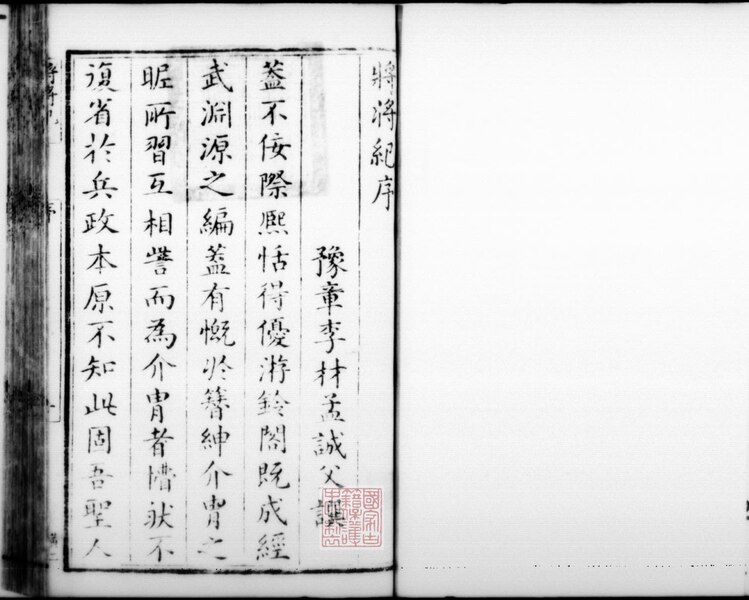 將將紀序
豫章李材孟誠父譔
蓋不佞際熙恬得優游鈴閣既成經
武淵源之編蓋有慨於簪紳介胄之
昵所習互相訾而為介胄者懵狀不
復省於兵政本原不知此固吾聖人